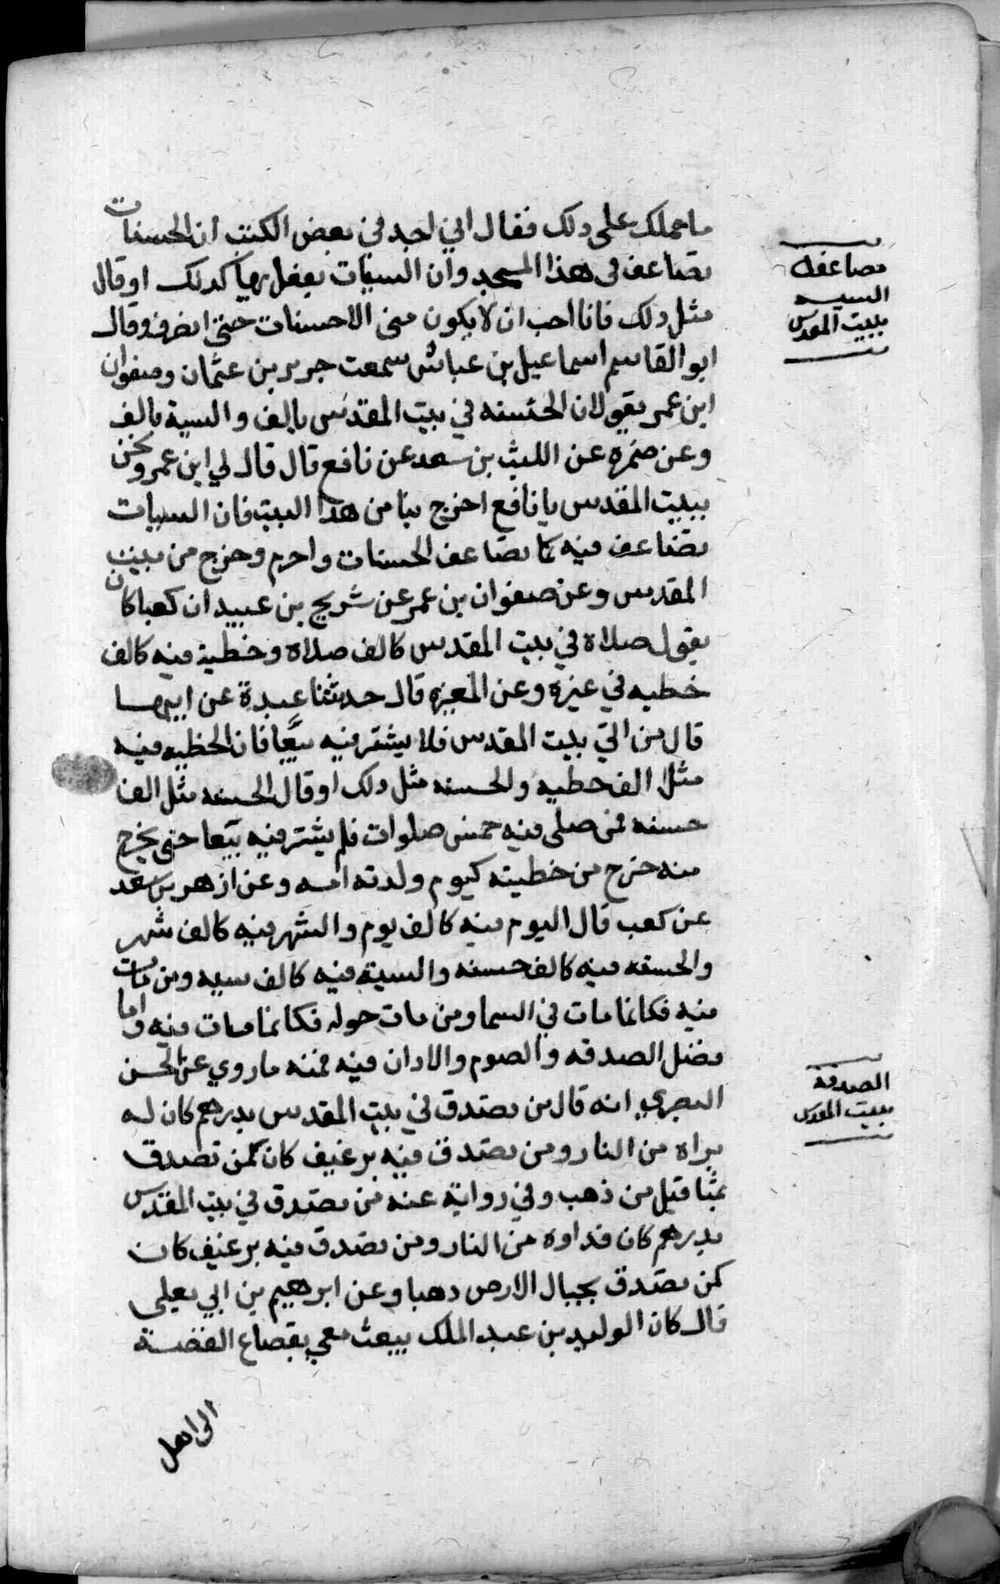 ما حملك على دلك فقال اني اجد في بعض الكتب ان الحسنات
تضاعف في هذا المسجد وان السيات يفعل بها كدلك او قال
مثل دلك فانا احب ان لا يكون مني الا حسنات حتى انصرف وقال
ابو القاسم اسماعيل بن عياش سمعت حرير بن عثمان وصفوان
ابن عمر يقولان الحسنه في بيت المقدس بالف والسية بالف
وعن ضمره عن الليث بن سعد عن نافع قال قال لي ابن عمر ونحن
ببيت المقدس يا نافع اخرج بنا من هذا البيت فان السيات
تضاعف فيه كما تضاعف الحسنات واحرم وخرج من بيت
المقدس وعن صفوان بن عمر عن شريح بن عبيد ان كعبا كان
يقول صلاة في بيت المقدس كالف صلاة وخطية فيه كالف
خطيه في غيره وعن المغيره قال حدثتنا عبدة عن ابيها
قال من اتى بيت المقدس فلا يشتر فيه بيعا فان الخطيه فيه
مثل الف خطيه والحسنه مثل دلك او قال الحسنه مثل الف
حسنه فمن صلى فيه خمس صلوات فلم يشتر فيه بيعا حتى يخرج
منه خرج من خطيته كيوم ولدته امه وعن ازهر بن سعد
عن كعب قال اليوم فيه كالف يوم والشهر فيه كالف شهر
والحسنه فيه كالف حسنه والسية فيه كالف سيه ومن مات
فيه فكانما مات في السما ومن مات حوله فكانما مات فيه واما
فضل الصدقه والصوم والادان فيه فمنه ما روي عن الحسن
البصري انه قال من تصدق في بيت المقدس بدرهم كان له
براه من النار ومن تصدق فيه برغيف كان كمن تصدق
بمثاقيل من ذهب وفي رواية عنه من تصدق في بيت المقدس
بدرهم كان فداوه من النار ومن تصدق فيه برغيف كان
كمن تصدق بجبال الارض دهبا وعن ابرهيم بن ابي يعلى
قال كان الوليد بن عبد الملك يبعث معي بقصاع الفضة
الى اهل
مضاعفة
السيه
ببيت المقدس
الصدقة
ببيت المقدس